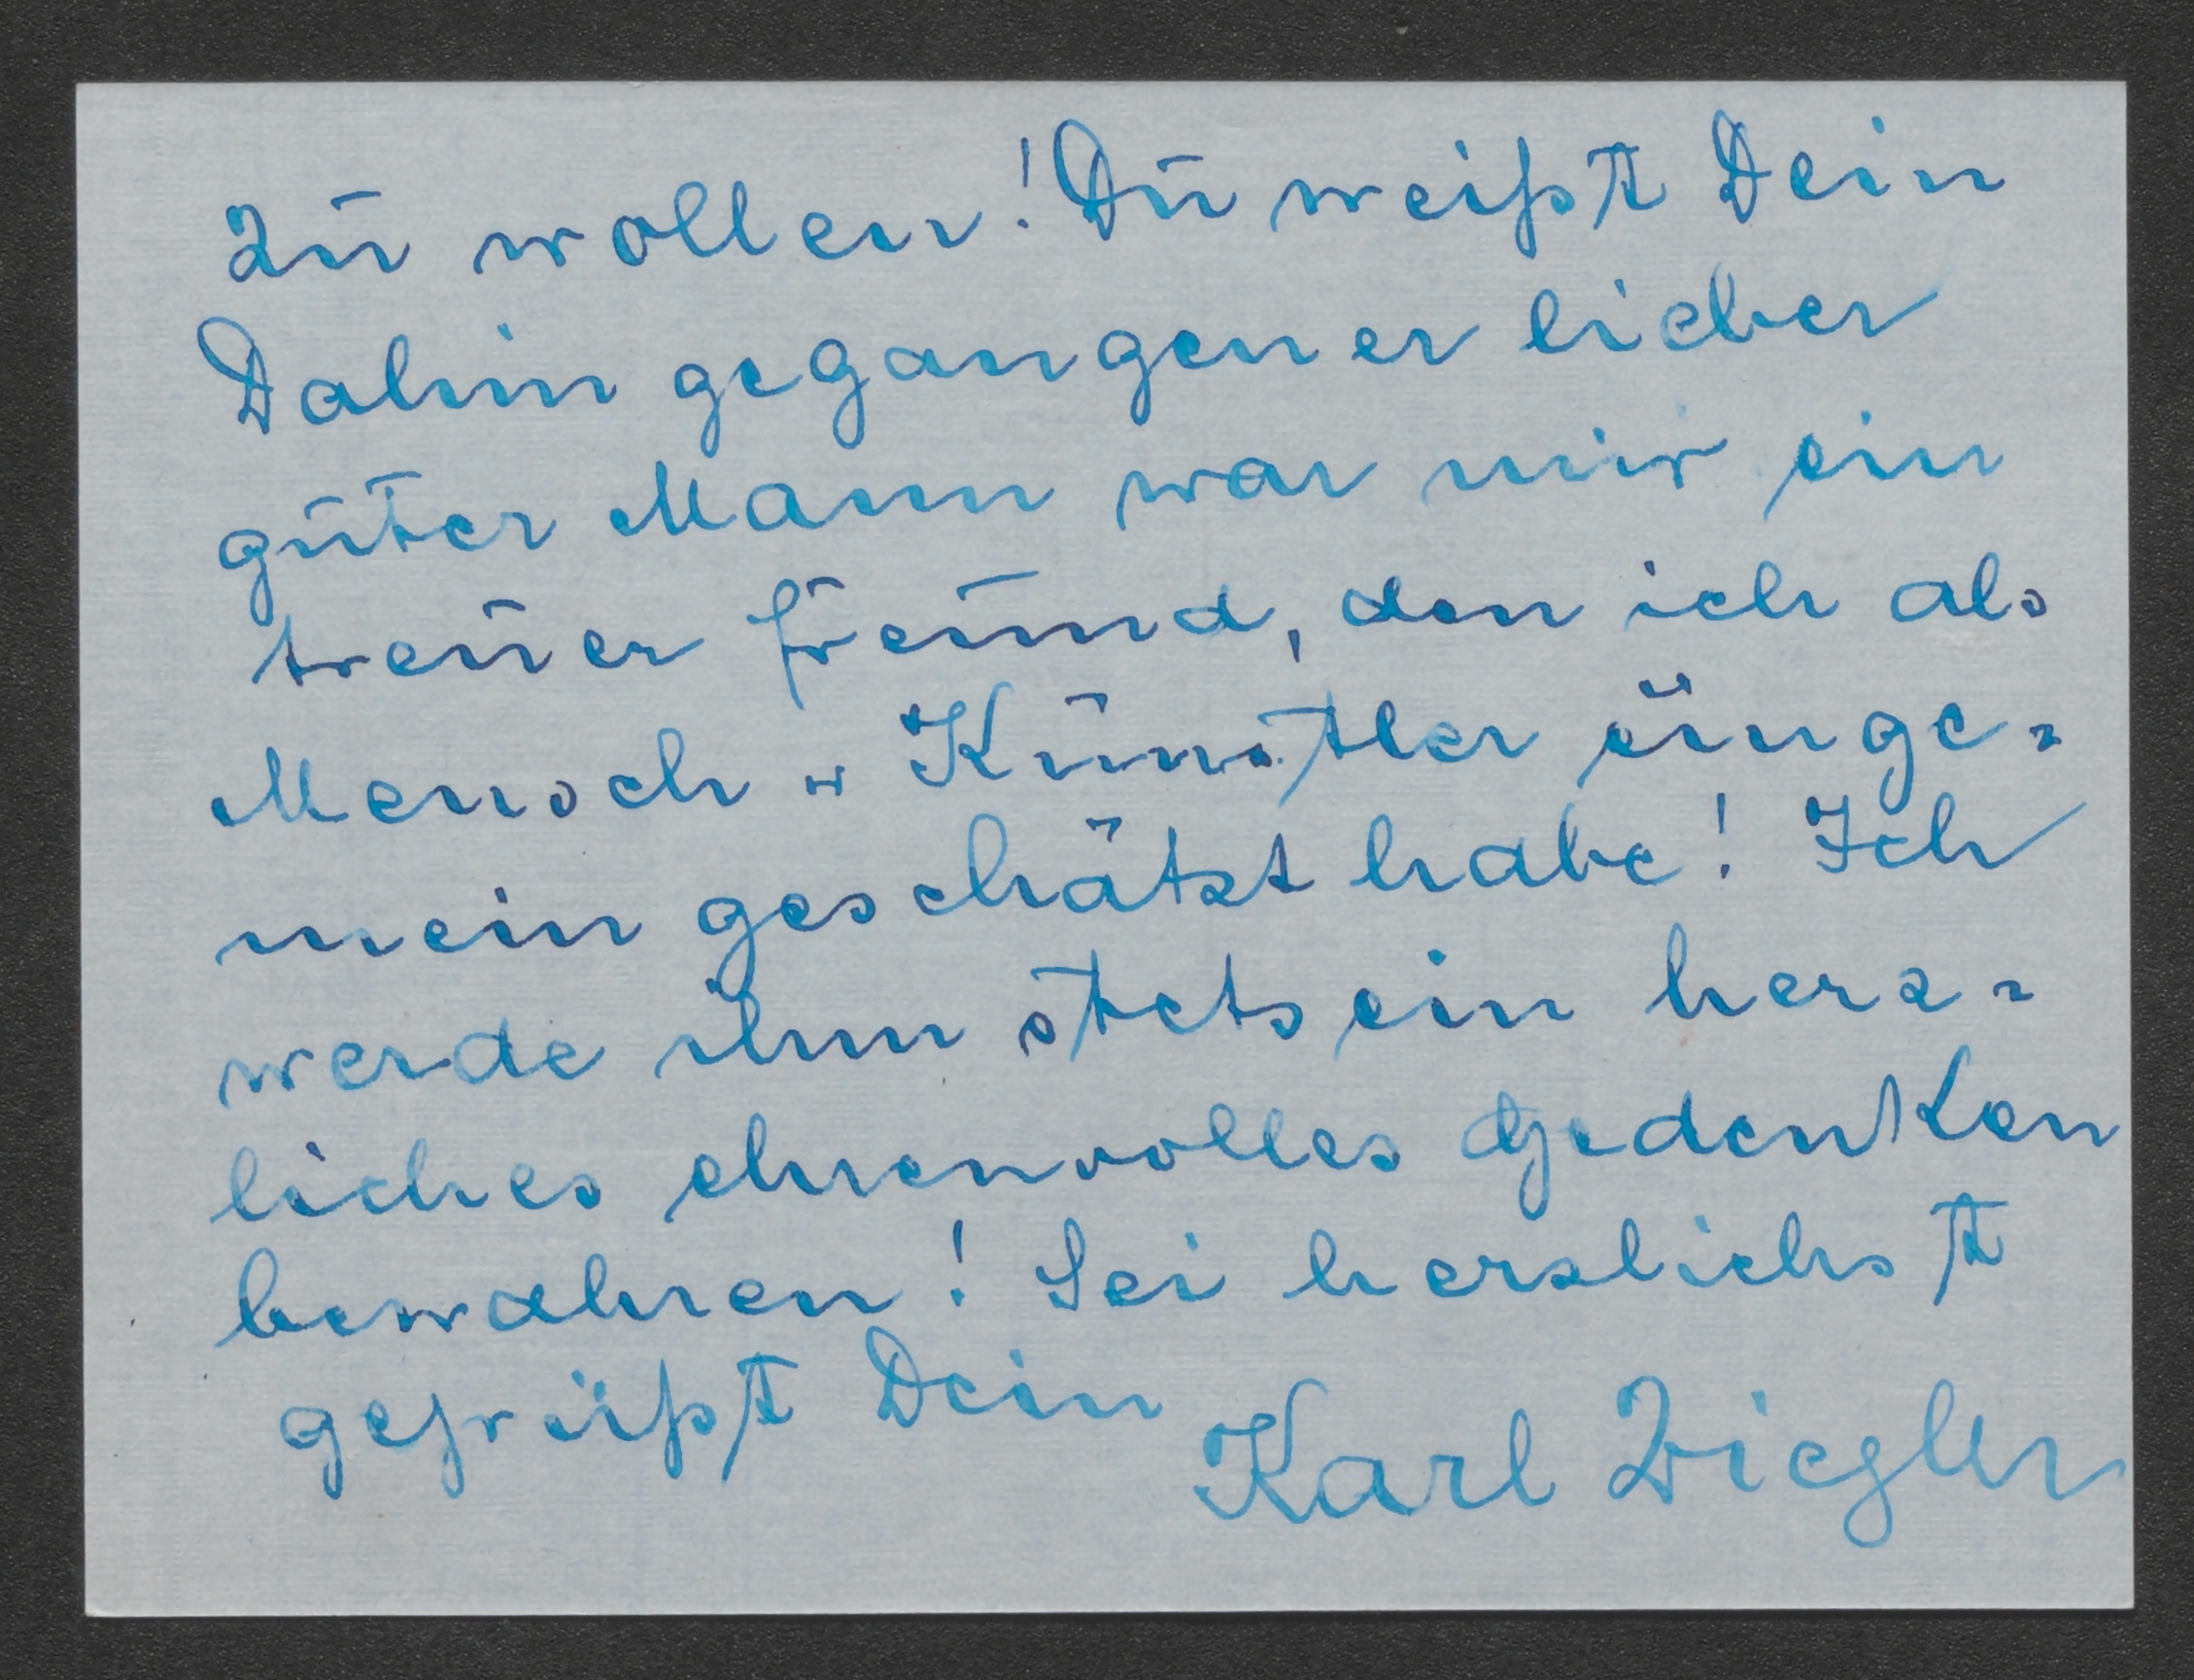 zu wollen! Du weißt Dein
Dahin gegangener lieber
guter Mann war mir ein
treuer Freund, den ich als
Mensch u Künstler unge=
mein geschätzt habe! Ich
werde ihm stets ein herz=
liches ehrenvolles Gedenken
bewahren! Sei herzlichst
gegrüßt Dein Karl Ziegler